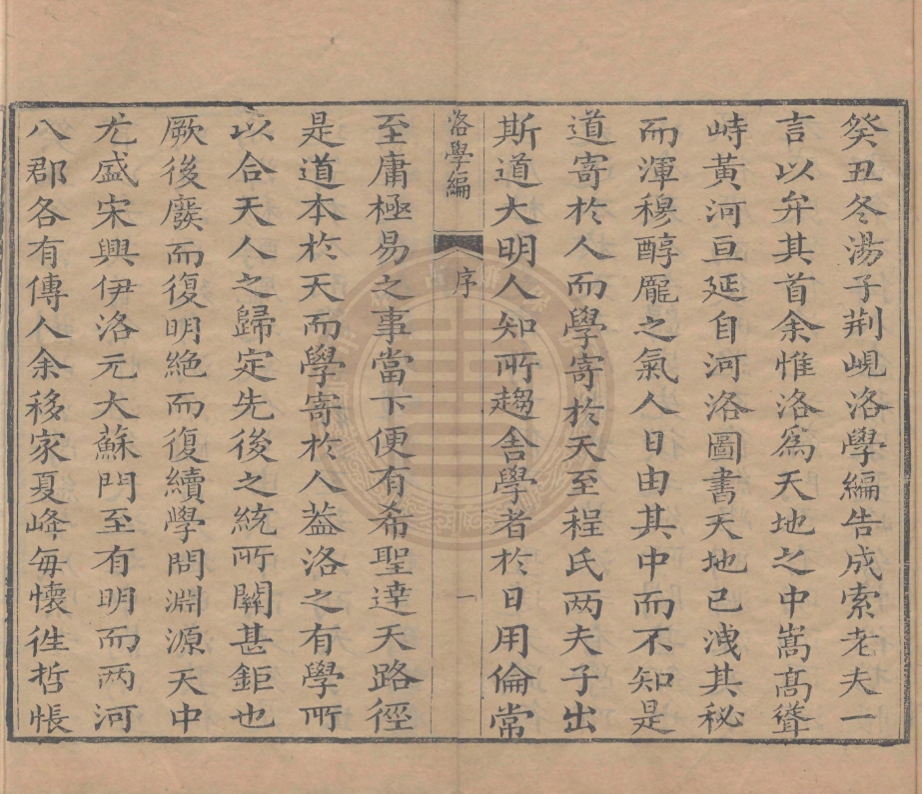 癸丑冬湯子荆峴洛學編告成索老夫一
言以弁其首余惟洛爲天地之中嵩高聳
峙黃河亘延自河洛圖書天地已洩其秘
而渾穆醇龎之氣人日由其中而不知是
道寄於人而學寄於天至程氏两夫子出
斯道大明人知所趨舍學者於日用倫常
洛學編 序 一
至庸極易之事當下便有希聖達天路徑
是道本於天而學寄於人葢洛之有學所
以合天人之歸定先後之統所關甚鉅也
厥後廢而復明絶而復續學問淵源天中
尤盛宋興伊洛元大蘇門至有明而两河
八郡各有傳人余移家夏峰每懷徃哲悵